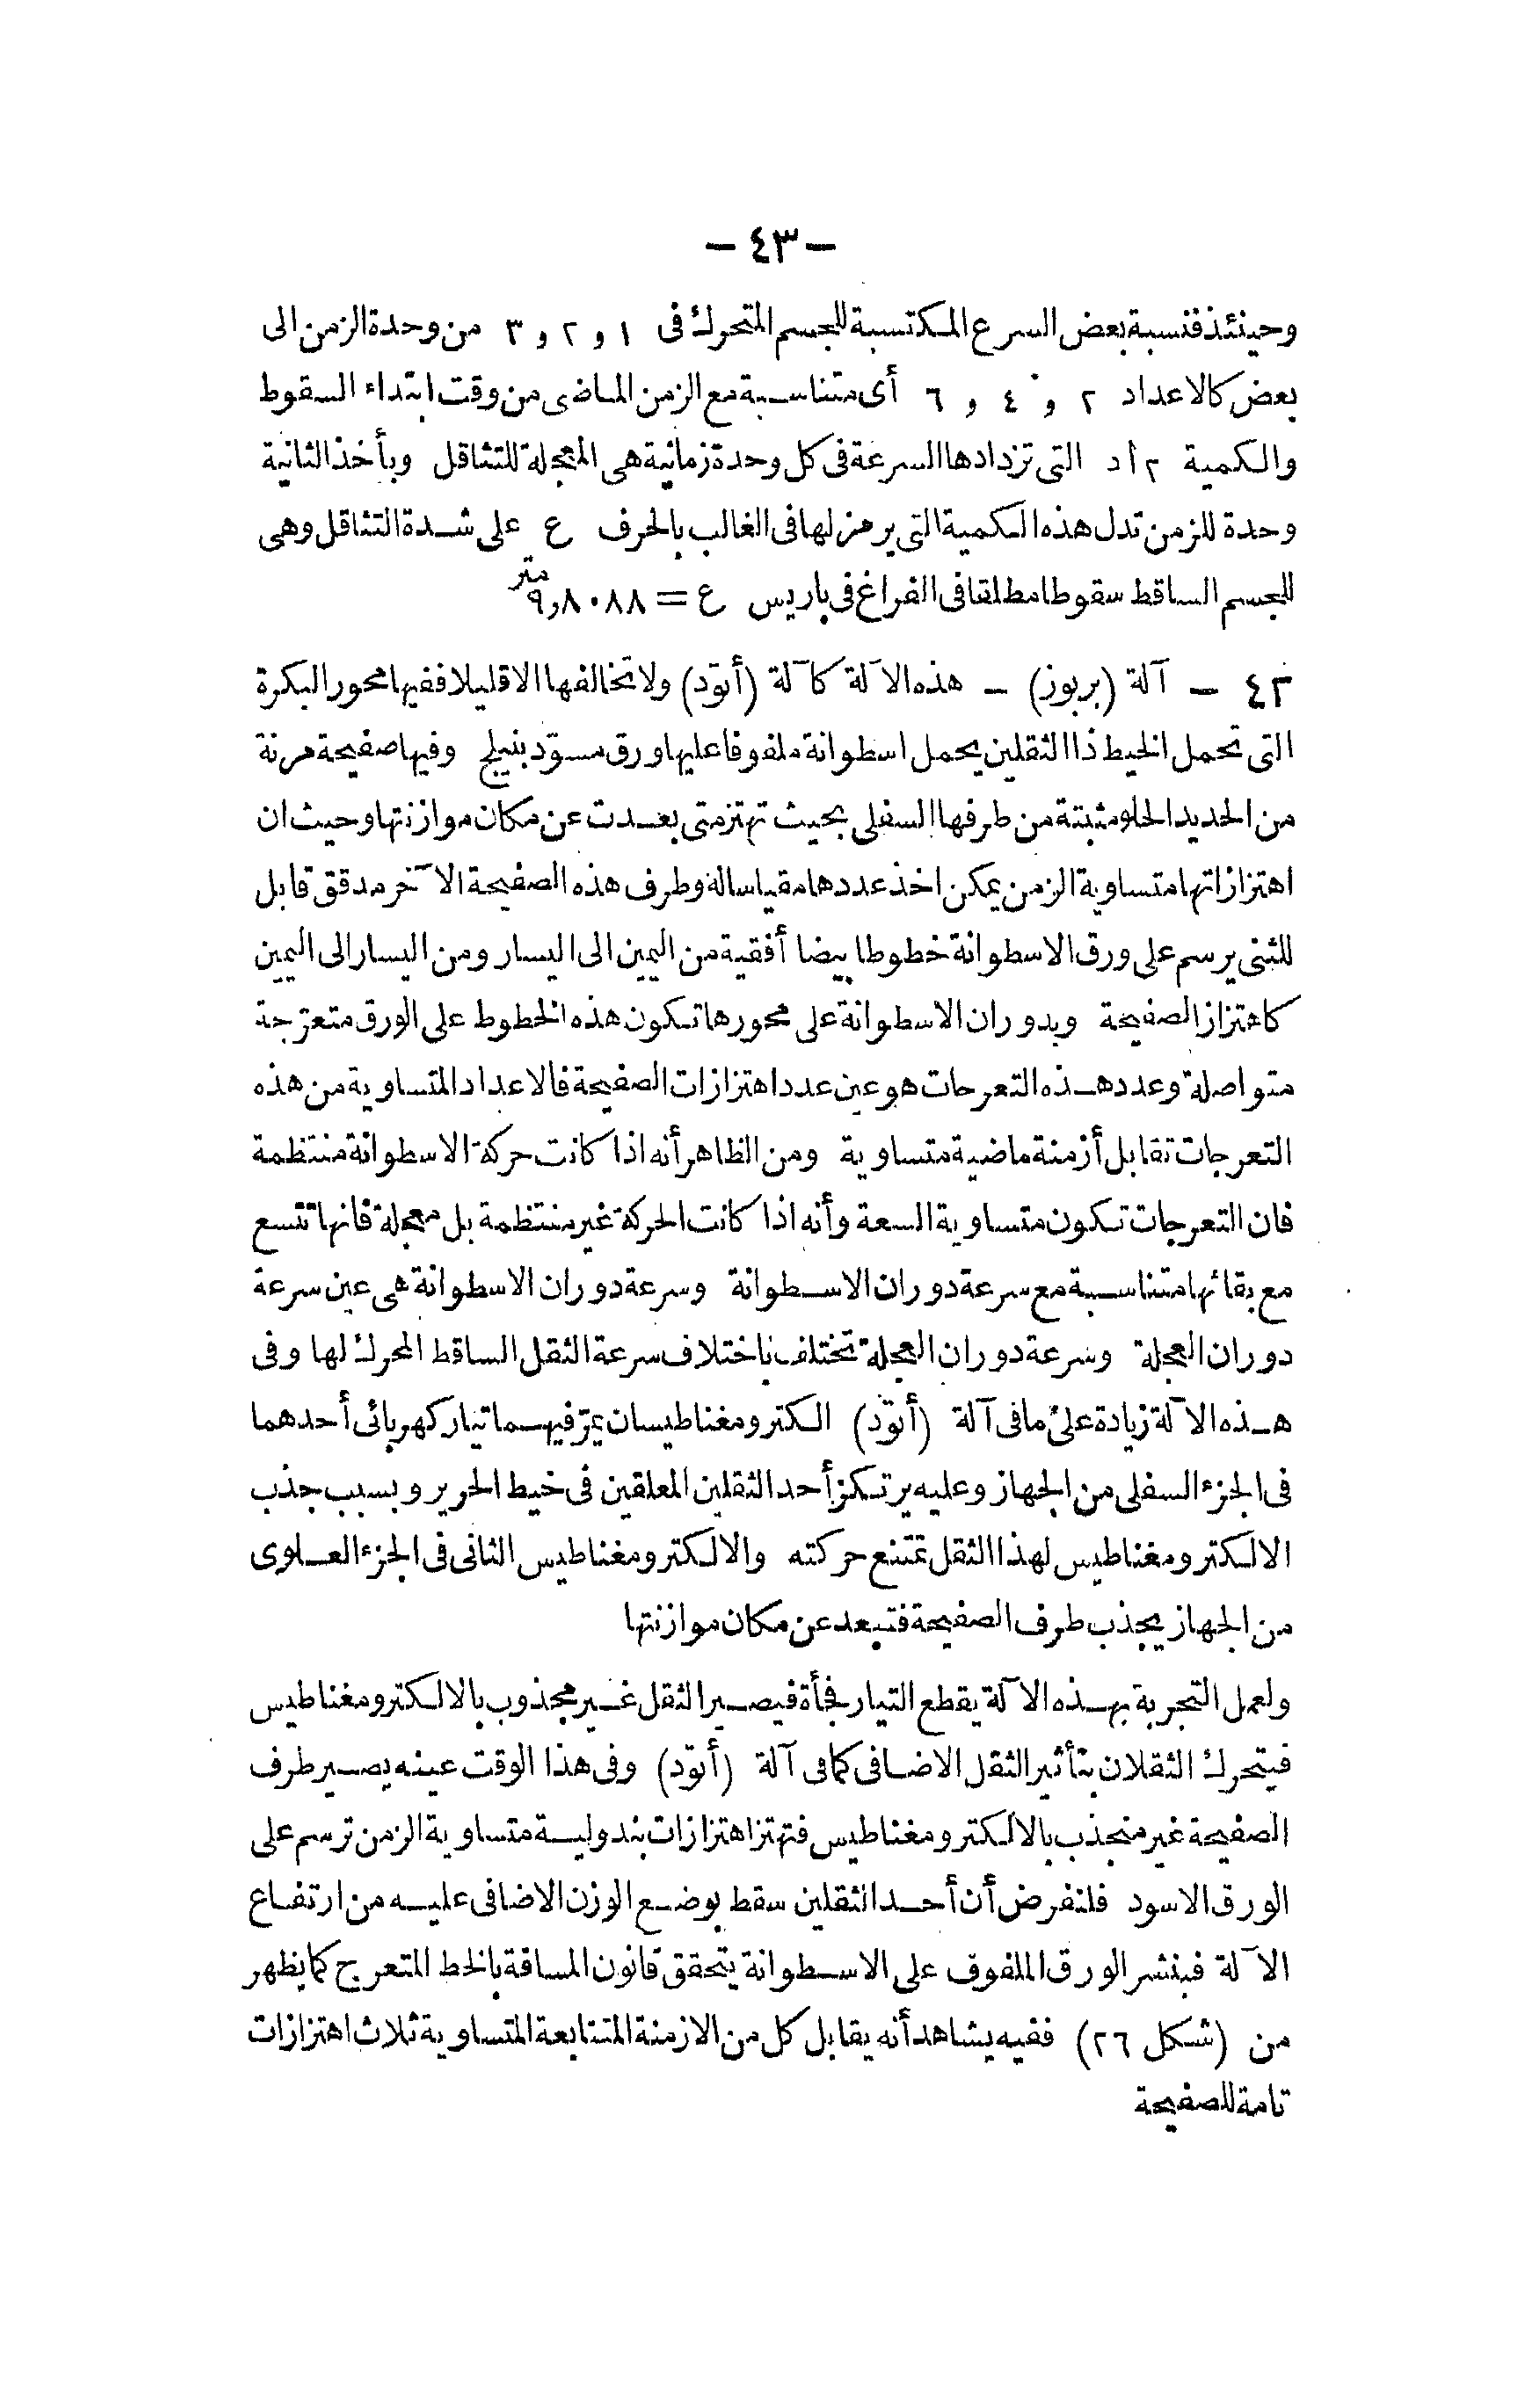 — ٤٣ —
وحينئذ فنسبة بعض السرع المكتسبة للجسم المتحرك فى ١ و ٢ و ٣ من وحدة الزمن الى
بعض كالاعداد ٢ و ٤ و ٦ أى متناسبة مع الزمن الماضى من وقت ابتداء السقوط
والكمية ٢أد التى تزدادها السرعة فى كل وحدة زمانية هى المعجلة للتثاقل وبأخذ الثانية
وحدة للزمن تدل هذه الكمية التى يرمز لها فى الغالب بالحرف ع على شدة التثاقل وهى
للجسم الساقط سقوطا مطلقا فى الفراغ فى باريس ع = ٩٫٨٠٨٨ متر
٤٢ — آلة (بربوز) — هذه الآلة كآلة (أتوّد) ولا تخالفها الا قليلا ففيها محور البكرة
التى تحمل الخيط ذا الثقلين يحمل اسطوانة ملفوفا عليها ورق مسوّد بنيلج وفيها صفيحة مرنة
من الحديد الحلو مثبتة من طرفها السفلى بحيث تهتز متى بعدت عن مكان موازنتها وحيث ان
اهتزازاتها متساوية الزمن يمكن اخذ عددها مقياسا له وطرف هذه الصفيحة الآخر مدقق قابل
للثنى يرسم على ورق الاسطوانة خطوطا بيضا أفقية من اليمين الى اليسار ومن اليسار الى اليمين
كاهتزاز الصفيحة وبدوران الاسطوانة على محورها تكون هذه الخطوط على الورق متعرّجة
متواصلة وعدد هذه التعرجات هو عين عدد اهتزازات الصفيحة فالاعداد المتساوية من هذه
التعرجات تقابل أزمنة ماضية متساوية ومن الظاهر أنه اذا كانت حركة الاسطوانة منتظمة
فان التعرجات تكون متساوية السعة وأنه اذا كانت الحركة غير منتظمة بل معجلة فانها تتسع
مع بقائها متناسبة مع سرعة دوران الاسطوانة وسرعة دوران الاسطوانة هى عين سرعة
دوران العجلة وسرعة دوران العجلة تختلف باختلاف سرعة الثقل الساقط المحرك لها وفى
هذه الآلة زيادة على ما فى آلة (أتوّد) الكترومغناطيسان يمرّ فيهما تيار كهربائى أحدهما
فى الجزء السفلى من الجهاز وعليه يرتكز أحد الثقلين المعلقين فى خيط الحرير وبسبب جذب
الالكترومغناطيس لهذا الثقل تمتنع حركته والالكترومغناطيس الثانى فى الجزء العلوى
من الجهاز يجذب طرف الصفيحة فتبعد عن مكان موازنتها
ولعمل التجربة بهذه الآلة يقطع التيار فجأة فيصير الثقل غير مجذوب بالالكترومغناطيس
فيتحرك الثقلان بتأثير الثقل الاضافى كما فى آلة (أتوّد) وفى هذا الوقت عينه يصير طرف
الصفيحة غير منجذب بالالكترومغناطيس فتهتز اهتزازات بندولية متساوية الزمن ترسم على
الورق الاسود فلنفرض أن أحد الثقلين سقط بوضع الوزن الاضافى عليه من ارتفاع
الآلة فبنشر الورق الملفوف على الاسطوانة يتحقق قانون المسافة بالخط المتعرج كما يظهر
من (شكل ٢٦) ففيه يشاهد أنه يقابل كل من الازمنة المتتابعة المتساوية ثلاث اهتزازات
تامة للصفيحة